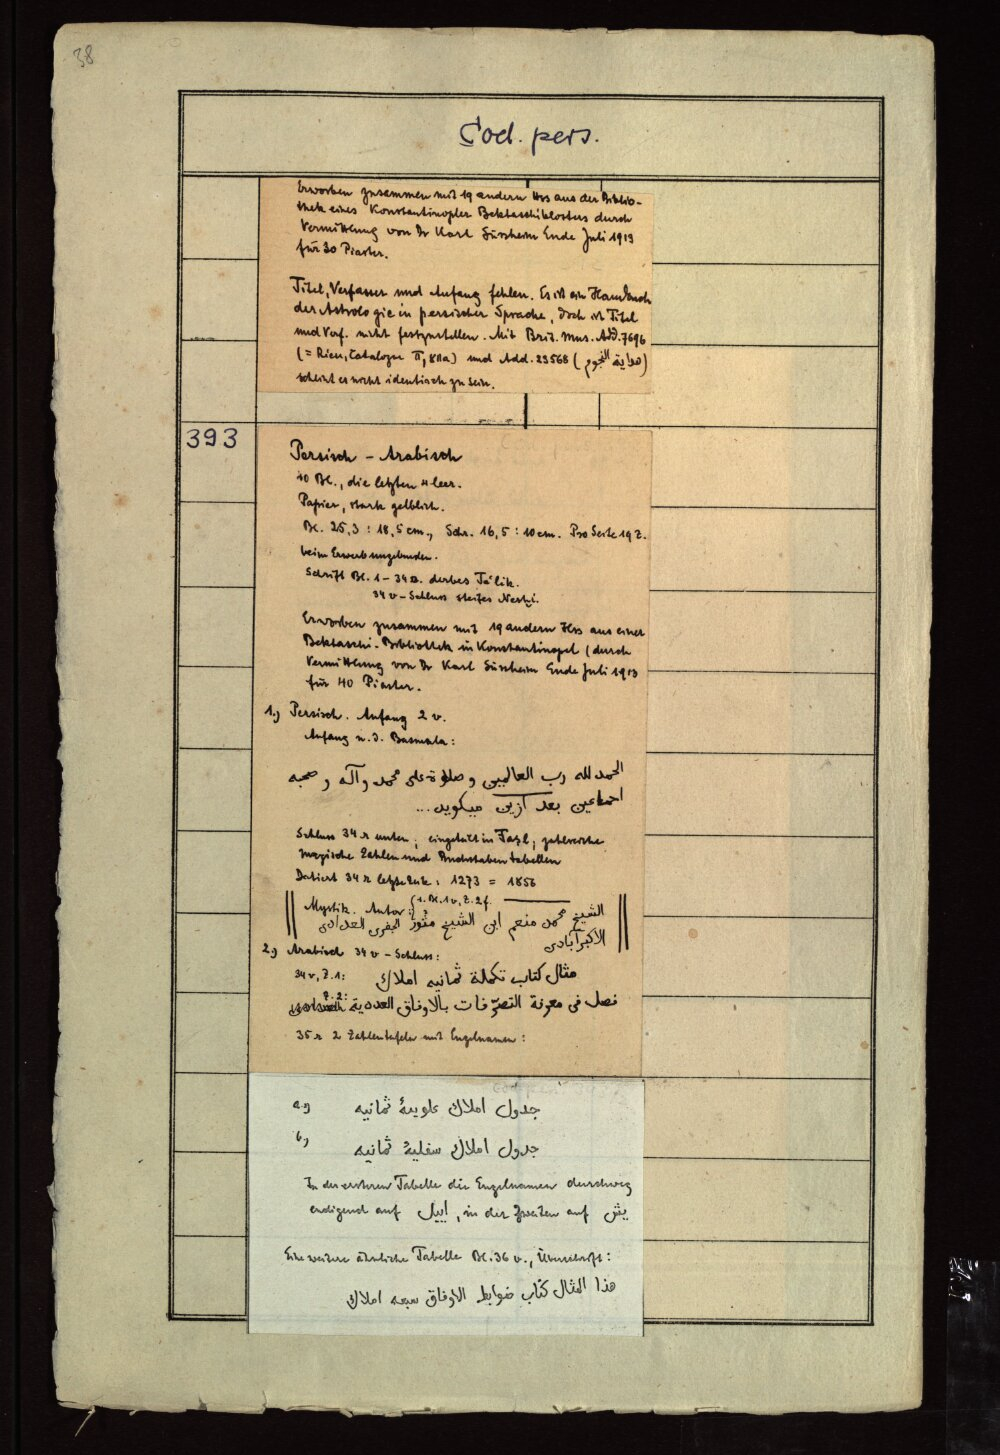 38
Cod. pers.
Erworben zusammen mit 19 andern Hss aus der Biblio-
thek eines Konstantinopler Bektaschiklosters durch
Vermittlung von Dr Karl Süssheim Ende Juli 1913
für 30 Piaster.
Titel, Verfasser und Anfang fehlen. Es ist ein Handbuch
der Astrologie in persischer Sprache, doch ist Titel
und Verf. nicht festzustellen. Mit Brit. Mus. Add. 7696
(= Rieu, Catalogue II, 811a) und Add. 23568 (هداية النجوم)
scheint es nicht identisch zu sein.
393
Persisch – Arabisch
40 Bl., die letzten 4 leer.
Papier, stark gelblich.
Bl. 25,3 : 18,5 cm., Schr. 16,5 : 10 cm. Pro Seite 19 Z.
beim Erwerb ungebunden.
Schrift Bl. 1 – 34 r. derbes Ta'lik.
34 v – Schluss steifes Neshi.
Erworben zusammen mit 19 andern Hss aus einer
Bektaschi-Bibliothek in Konstantinopel (durch
Vermittlung von Dr Karl Süssheim Ende Juli 1913
für 40 Piaster.
1.) Persisch. Anfang 2 v.
Anfang n. d. Basmala:
الحمد لله رب العالمين و صلاة على محمد وآله و صحبه
اجماعين بعد ازين ميكويد...
Schluss 34 r unten; eingeteilt in Faṣl; zahlreiche
magische Zahlen und Buchstabentabellen
Datiert 34 r letzte Zeile: 1273 = 1856
(1. Bl. 1 v, Z. 2 f.
Mystik. Autor: الشيخ محمد منعم ابن الشيخ منور الجفرى
الاكبرآبادى
2.) Arabisch 34 v – Schluss:
34 v, Z. 1: مثال كتاب تكملة ثمانيه املاك
Z. 2: فصل فى معرفة التصرّفات بالاوفاق العددية
35 r 2 Zahlentafeln mit Engelnamen:
a.) جدول املاك علوية ثمانيه
b) جدول املاك سفلية ثمانيه
In der ersteren Tabelle die Engelnamen durchweg
endigend auf اييل, in der zweiten auf يش
Eine weitere ähnliche Tabelle Bl. 36 v., Überschrift:
هذا المثال كتاب ضوابط الاوفاق سبعه املاك